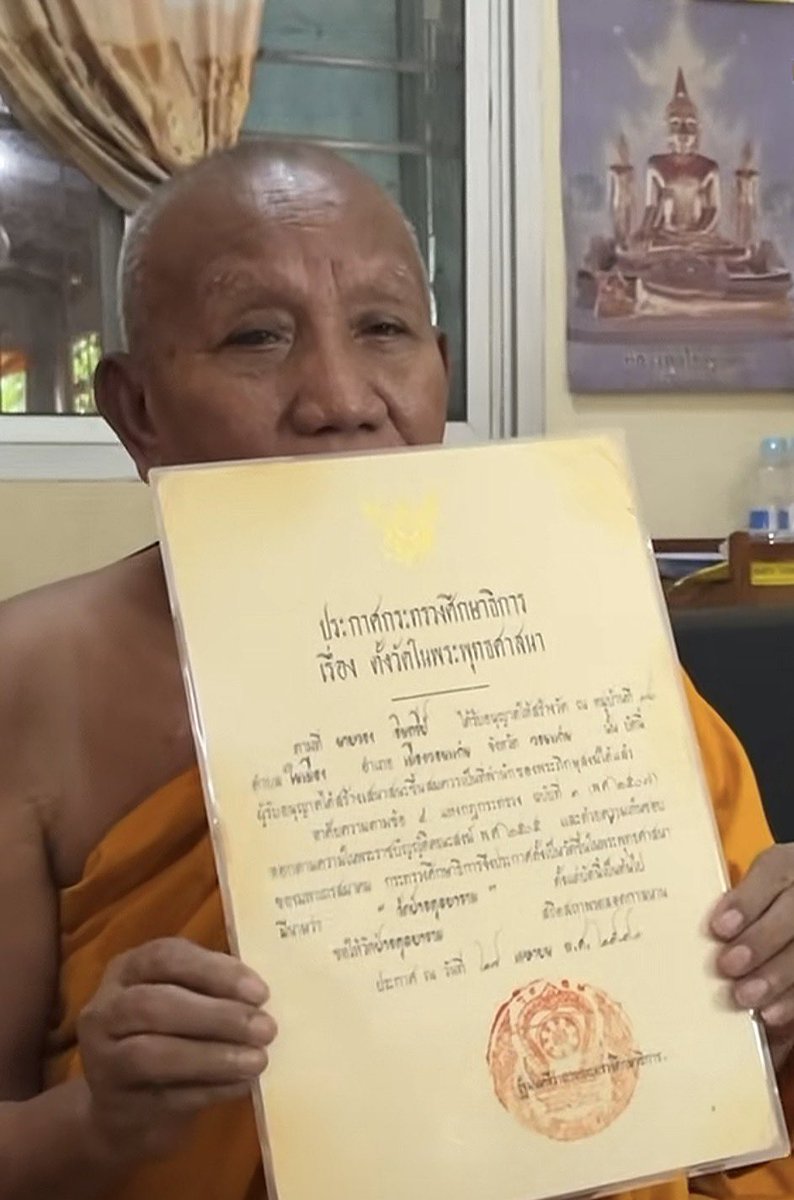 ประกาศกระทรวงศึกษาธิการ
เรื่อง ตั้งวัดในพระพุทธศาสนา
ตามที่ นายทอง ได้รับอนุญาตให้สร้างวัด ณ หมู่บ้านที่
ตำบล ในเมือง อำเภอ เมืองขอนแก่น จังหวัด ขอนแก่น นั้น บัดนี้
ผู้รับอนุญาตได้สร้างเสนาสนะขึ้นสมควรเป็นที่พำนักของพระภิกษุสงฆ์ได้แล้ว
อาศัยความตามข้อ ๔ แห่งกฎกระทรวง ฉบับที่ ๑ (พ.ศ. ๒๕๐๗)
ออกตามความในพระราชบัญญัติคณะสงฆ์ พ.ศ. ๒๕๐๕ และด้วยความเห็นชอบ
ของมหาเถรสมาคม กระทรวงศึกษาธิการจึงประกาศตั้งเป็นวัดขึ้นในพระพุทธศาสนา
มีนามว่า " วัดป่าอดุลยาราม " ตั้งแต่บัดนี้เป็นต้นไป
ขอให้วัดป่าอดุลยาราม สถิตสถาพรตลอดกาลนาน
ประกาศ ณ วันที่ ๒๗ เมษายน พ.ศ.
รัฐมนตรีว่าการกระทรวงศึกษาธิการ